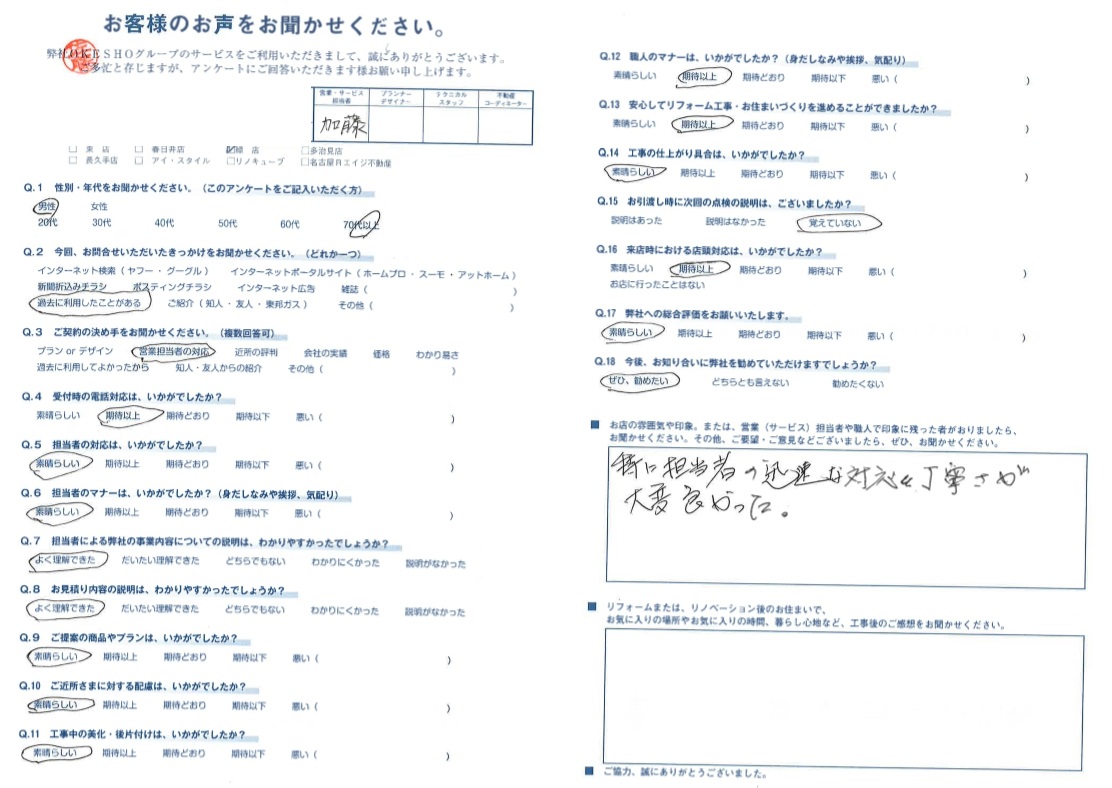 お客様のお声をお聞かせください。
弊社のKESHOグループのサービスをご利用いただきまして、誠にありがとうございます。
ご多忙と存じますが、アンケートにご回答いただきます様お願い申し上げます。
営業・サービス担当者 プランナーデザイナー テクニカルスタッフ 不動産コーディネーター
加藤
□ 本 店 □ 春日井店 ☑緑 店 □多治見店
□ 長久手店 □ アイ・スタイル □リノキューブ □名古屋Rエイジ不動産
Q.1 性別・年代をお聞かせください。（このアンケートをご記入いただく方）
男性 女性
20代 30代 40代 50代 60代 70代以上
Q.2 今回、お問合せいただいたきっかけをお聞かせください。（どれか一つ）
インターネット検索（ ヤフー ・ グーグル ） インターネットポータルサイト（ ホームプロ ・ スーモ ・ アットホーム ）
新聞折込みチラシ ポスティングチラシ インターネット広告 雑誌（ ）
過去に利用したことがある ご紹介（ 知人 ・ 友人 ・ 東邦ガス ） その他（ ）
Q.3 ご契約の決め手をお聞かせください。（複数回答可）
プラン or デザイン 営業担当者の対応 近所の評判 会社の実績 価格 わかり易さ
過去に利用してよかったから 知人・友人からの紹介 その他（ ）
Q.4 受付時の電話対応は、いかがでしたか？
素晴らしい 期待以上 期待どおり 期待以下 悪い（ ）
Q.5 担当者の対応は、いかがでしたか？
素晴らしい 期待以上 期待どおり 期待以下 悪い（ ）
Q.6 担当者のマナーは、いかがでしたか？（身だしなみや挨拶、気配り）
素晴らしい 期待以上 期待どおり 期待以下 悪い（ ）
Q.7 担当者による弊社の事業内容についての説明は、わかりやすかったでしょうか？
よく理解できた だいたい理解できた どちらでもない わかりにくかった 説明がなかった
Q.8 お見積り内容の説明は、わかりやすかったでしょうか？
よく理解できた だいたい理解できた どちらでもない わかりにくかった 説明がなかった
Q.9 ご提案の商品やプランは、いかがでしたか？
素晴らしい 期待以上 期待どおり 期待以下 悪い（ ）
Q.10 ご近所さまに対する配慮は、いかがでしたか？
素晴らしい 期待以上 期待どおり 期待以下 悪い（ ）
Q.11 工事中の美化・後片付けは、いかがでしたか？
素晴らしい 期待以上 期待どおり 期待以下 悪い（ ）
Q.12 職人のマナーは、いかがでしたか？（身だしなみや挨拶、気配り）
素晴らしい 期待以上 期待どおり 期待以下 悪い（ ）
Q.13 安心してリフォーム工事・お住まいづくりを進めることができましたか？
素晴らしい 期待以上 期待どおり 期待以下 悪い（ ）
Q.14 工事の仕上がり具合は、いかがでしたか？
素晴らしい 期待以上 期待どおり 期待以下 悪い（ ）
Q.15 お引渡し時に次回の点検の説明は、ございましたか？
説明はあった 説明はなかった 覚えていない
Q.16 来店時における店頭対応は、いかがでしたか？
素晴らしい 期待以上 期待どおり 期待以下 悪い（ ）
お店に行ったことはない
Q.17 弊社への総合評価をお願いいたします。
素晴らしい 期待以上 期待どおり 期待以下 悪い（ ）
Q.18 今後、お知り合いに弊社を勧めていただけますでしょうか？
ぜひ、勧めたい どちらとも言えない 勧めたくない
■ お店の雰囲気や印象。または、営業（サービス）担当者や職人で印象に残った者がおりましたら、
お聞かせください。その他、ご要望・ご意見などございましたら、ぜひ、お聞かせください。
特に担当者の迅速な対応と丁寧さが
大変良かった。
■ リフォームまたは、リノベーション後のお住まいで、
お気に入りの場所やお気に入りの時間、暮らし心地など、工事後のご感想をお聞かせください。
■ ご協力、誠にありがとうございました。